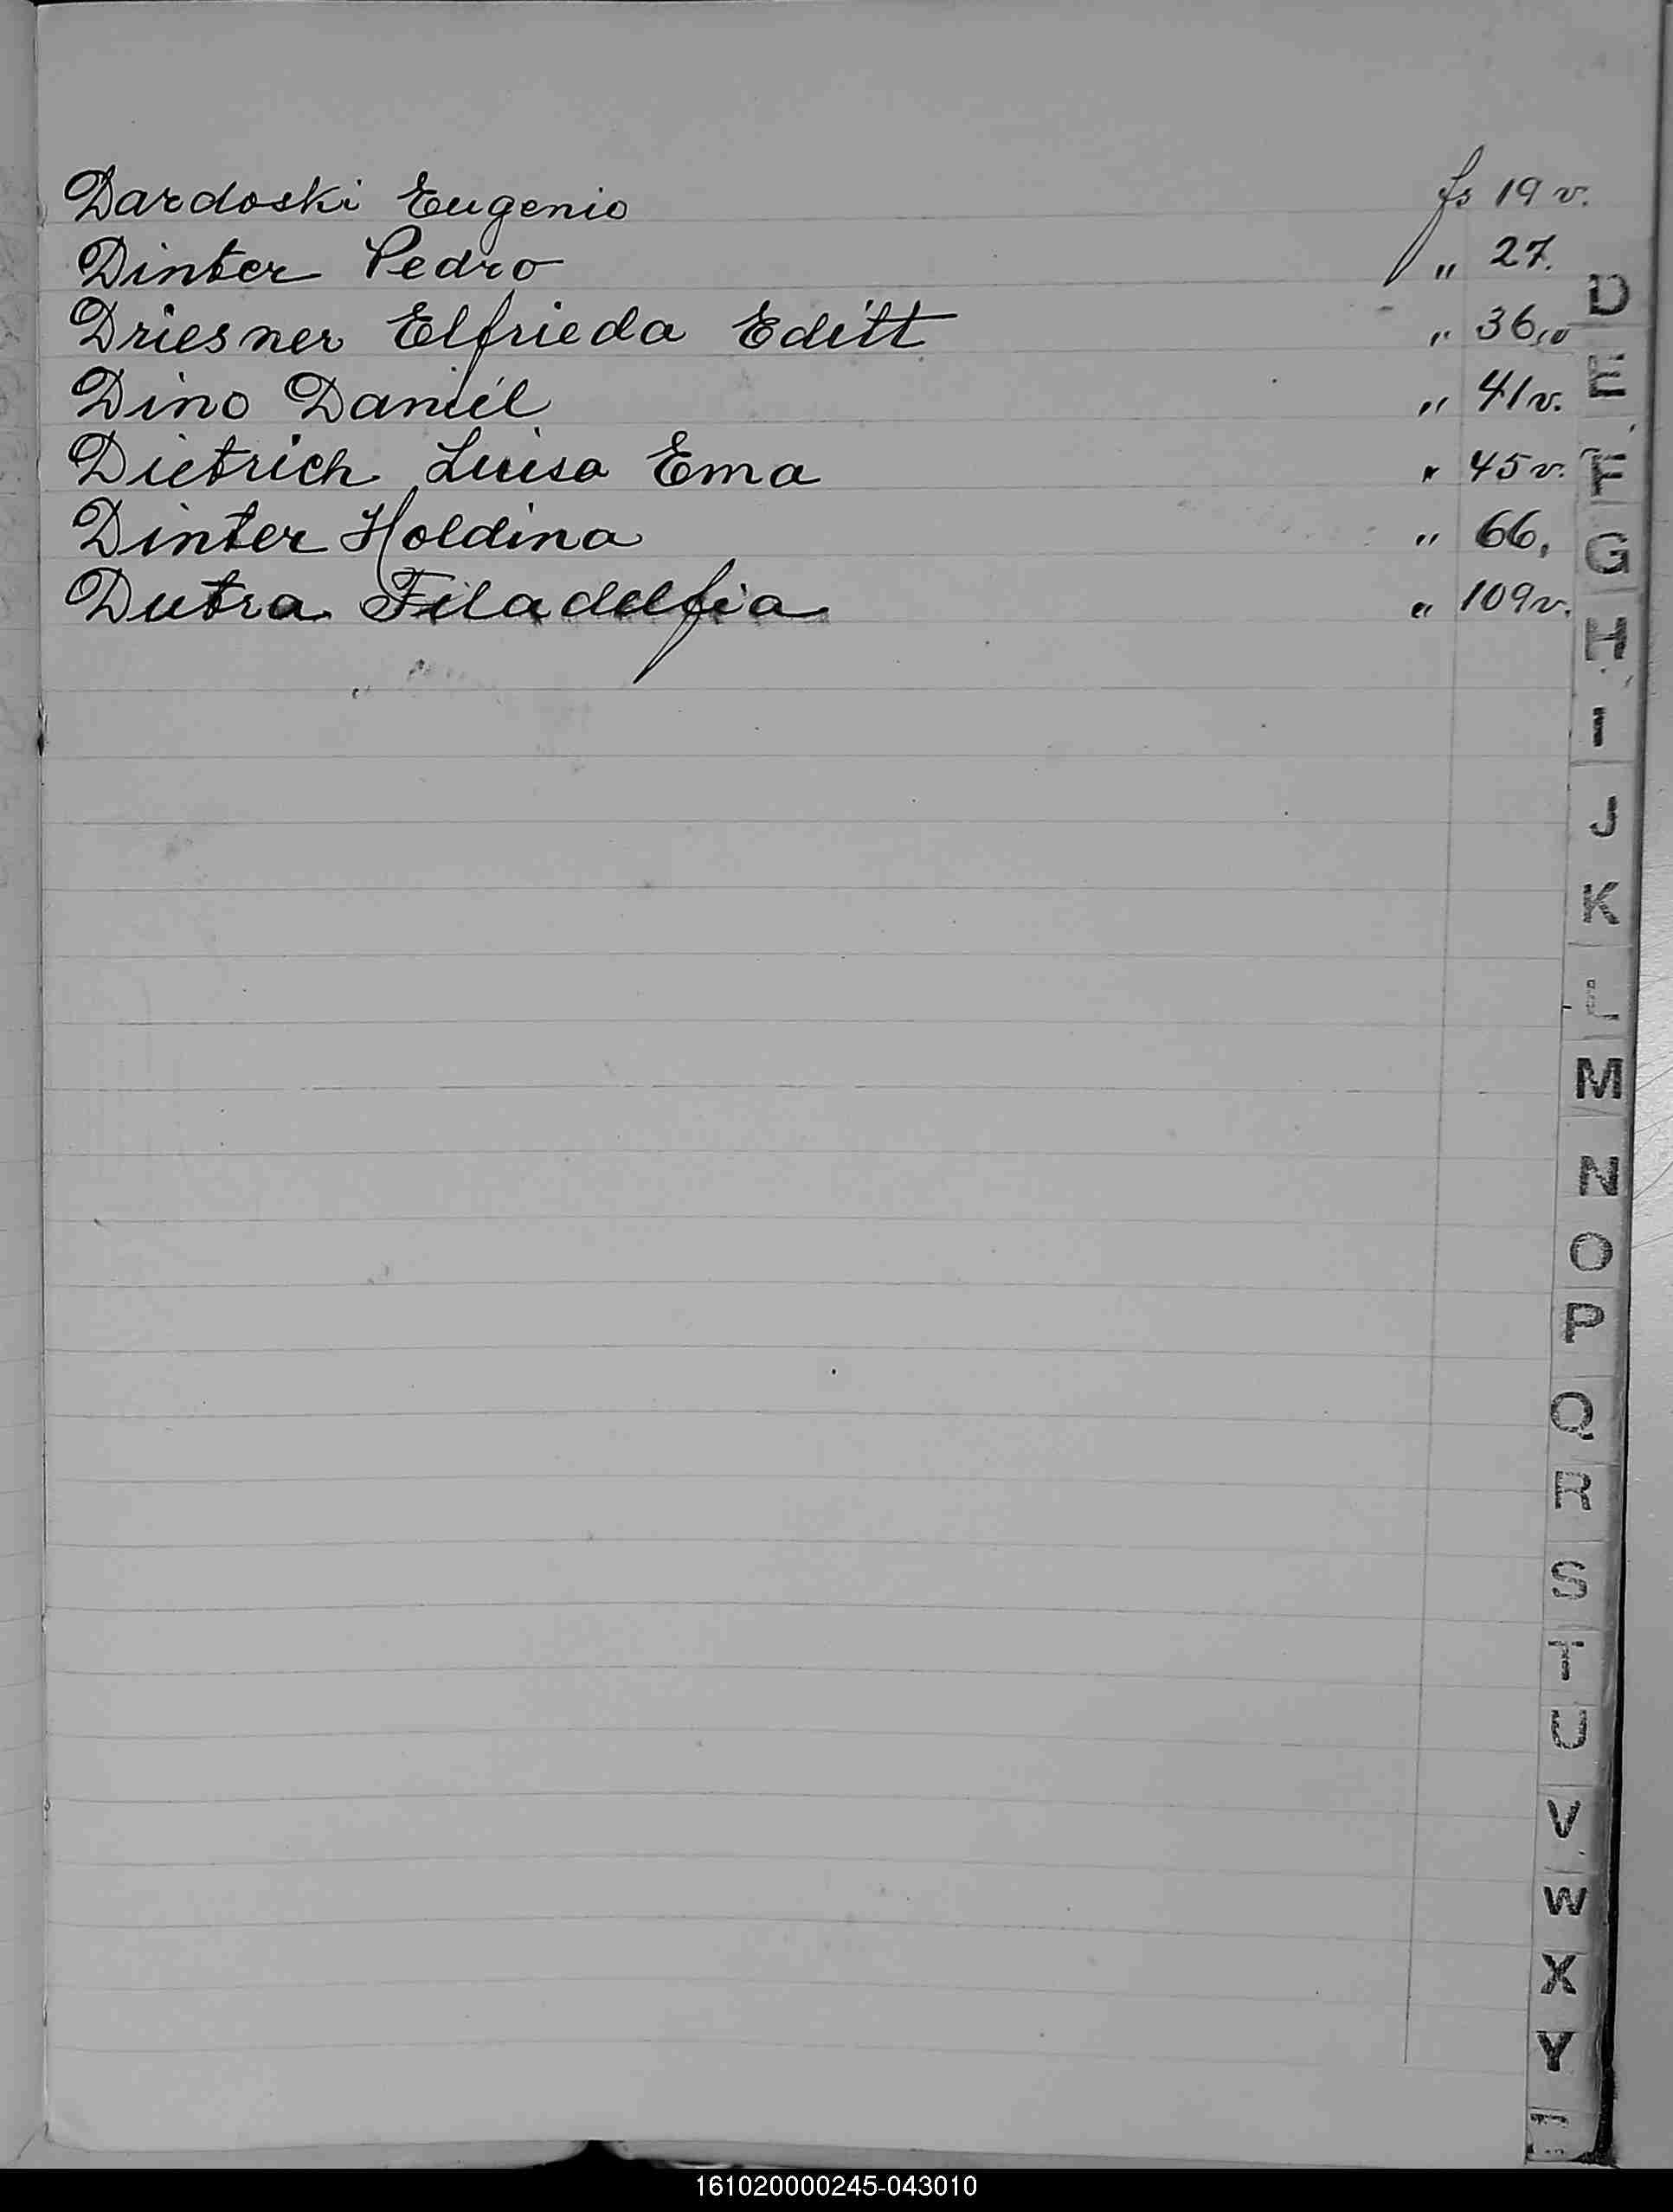 Dardoski Eugenio fs 19 v.
Dinter Pedro " 27.
Driesner Elfrieda Editt " 36
Dino Daniel " 41v.
Dietrich Luisa Ema " 45 v.
Dinter Holdina " 66,
Dutra Filadelfia " 109v.
D
E
F
G
H
I
J
K
L
M
N
O
P
Q
R
S
T
U
V
W
X
Y
161020000245-043010